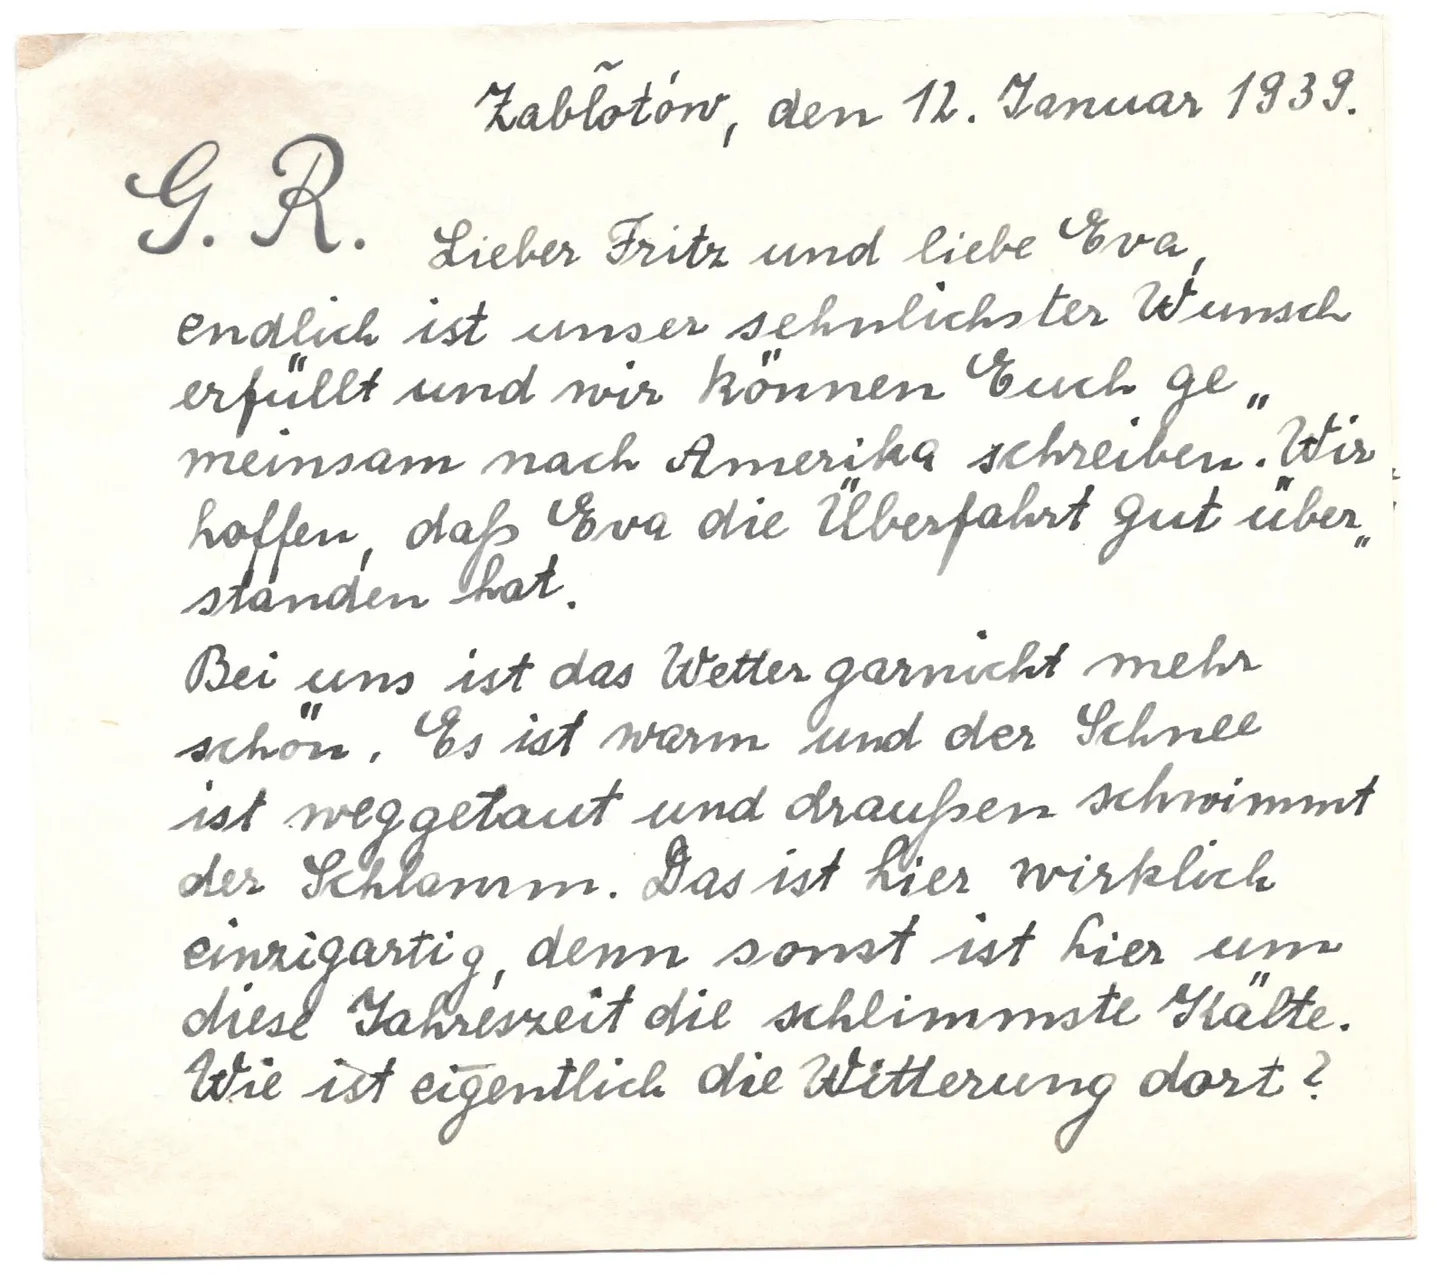 Zabłotów, den 12. Januar 1939.
G. R.
Lieber Fritz und liebe Eva,
endlich ist unser sehnlichster Wunsch
erfüllt und wir können Euch ge„
meinsam nach Amerika schreiben. Wir
hoffen, daß Eva die Überfahrt gut über„
standen hat.
Bei uns ist das Wetter garnicht mehr
schön. Es ist warm und der Schnee
ist weggetaut und draußen schwimmt
der Schlamm. Das ist hier wirklich
einzigartig, denn sonst ist hier um
diese Jahreszeit die schlimmste Kälte.
Wie ist eigentlich die Witterung dort?